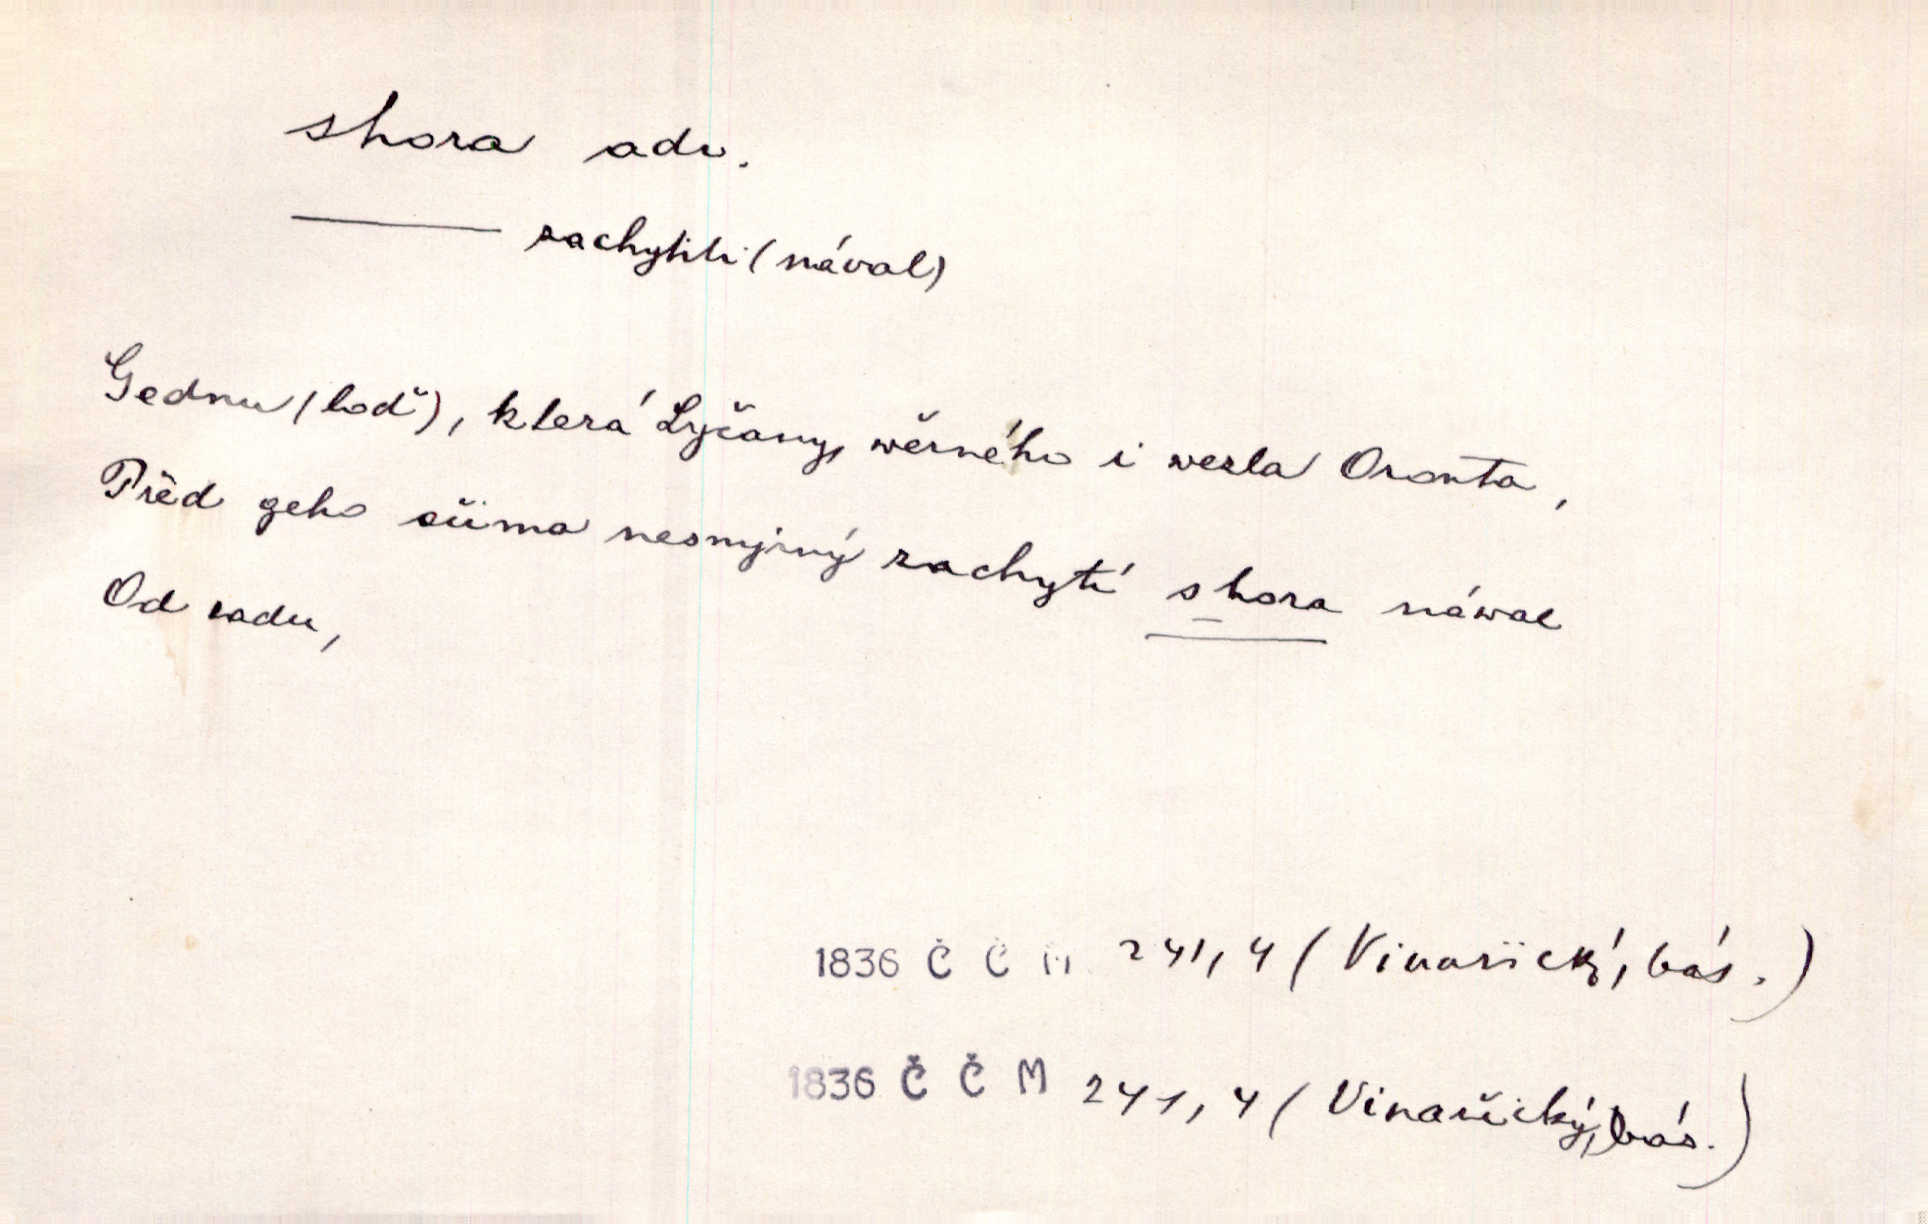 shora adv.
——— zachytiti (nával)
Gednu (loď), která Lyčany, wěrného i wezla Oronta,
Před geho očima nesmjrný zachytí shora náwal
Od zadu,
1836 Č Č M 241,4 (Vinařický, bás.)
1836 Č Č M 241,4 (Vinařický, bás.)